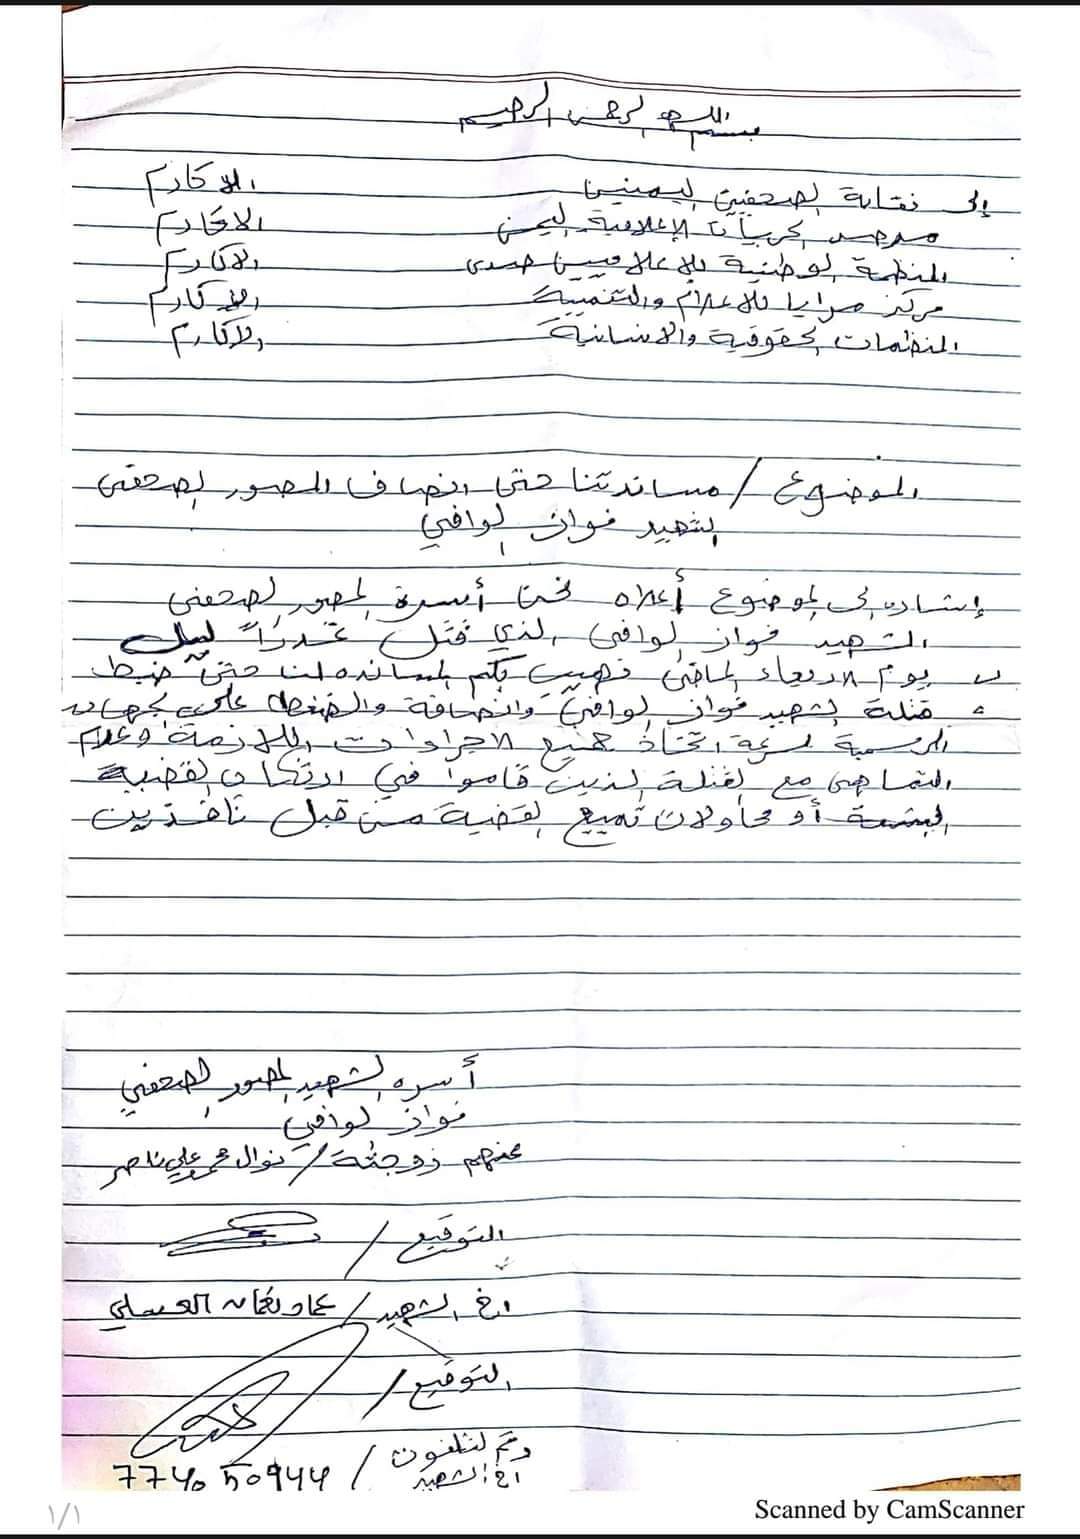 بسم الله الرحمن الرحيم
إلى نقابة الصحفيين اليمنيين الاكارم
مرصد الحريات الإعلامية اليمن الاكارم
المنظمة الوطنية للاعلاميين صدى الاكارم
مركز مرايا للاعلام والتنمية الاكارم
المنظمات الحقوقية والانسانية الاكارم
الموضوع / مساندتنا حتى انصاف المصور الصحفي
الشهيد فواز الوافي
إشاره إلى الموضوع أعلاه نحن أسرة المصور الصحفي
الشهيد فواز الوافي الذي قتل غدراً ليل
يوم الاربعاء الماضي نهيب بكم المسانده لنا حتى ضبط
قتلة الشهيد فواز الوافي وانصافة والضغط على الجهات
الرسمية لسرعة اتخاذ جميع الاجراءات اللازمة وعدم
التماهي مع القتلة الذين قاموا في ارتكاب القضية
البشعة أو محاولات تمييع القضية من قبل نافذين
أسره الشهيد المصور الصحفي
فواز الوافي
عنهم زوجتة / نوال محمد علي ناصر
التوقيع /
اخ الشهيد / عماد نعمان العسلي
التوقيع /
رقم التلفون /
اخ الشهيد
Scanned by CamScanner
١/١